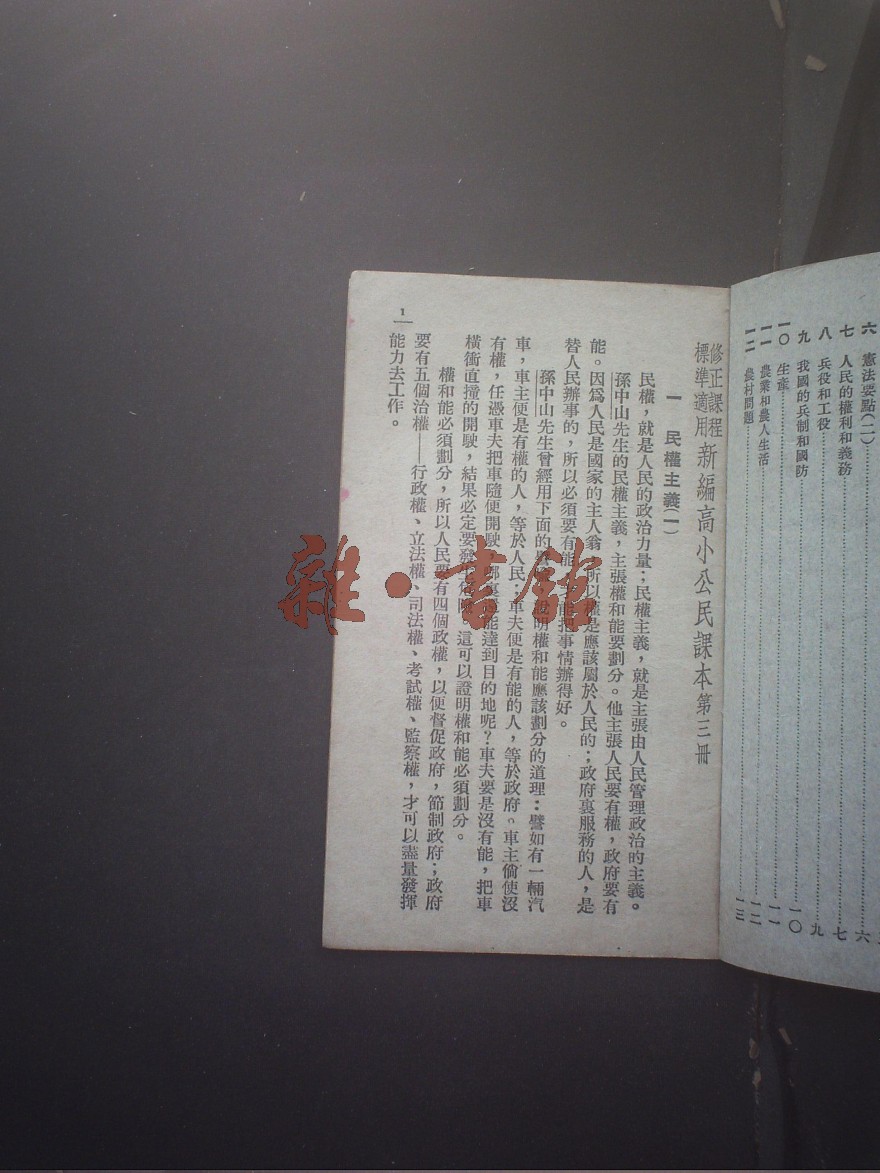 六 憲法要點(二) 六
七 人民的權利和義務 七
八 兵役和工役 九
九 我國的兵制和國防 一〇
一〇 生產 一一
一一 農業和農人生活 一二
一二 農村問題 一三
修正課程
標準適用
新編高小公民課本第三冊
一 民權主義(一)
民權，就是人民的政治力量；民權主義，就是主張由人民管理政治的主義。
孫中山先生的民權主義，主張權和能要劃分。他主張人民要有權，政府要有
能。因爲人民是國家的主人翁，所以權是應該屬於人民的；政府裏服務的人，是
替人民辦事的，所以必須要有能，才能把事情辦得好。
孫中山先生曾經用下面的譬喻，說明權和能應該劃分的道理：譬如有一輛汽
車，車主便是有權的人，等於人民；車夫便是有能的人，等於政府。車主倘使沒
有權，任憑車夫把車隨便開駛，哪裏還能達到目的地呢？車夫要是沒有能，把車
橫衝直撞的開駛，結果必定要發生危險。這可以證明權和能必須劃分。
權和能必須劃分，所以人民要有四個政權，以便督促政府，節制政府；政府
要有五個治權——行政權、立法權、司法權、考試權、監察權，才可以盡量發揮
能力去工作。
1
雜·書館